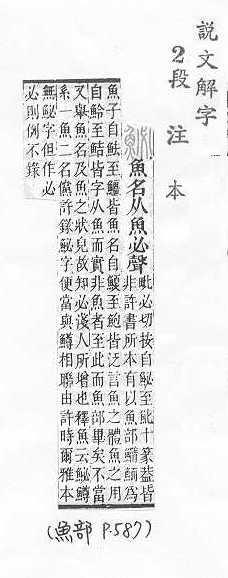 說文解字
2段 注 本
鮅
魚名从魚必聲
毗必切按自鮅至魤十篆葢皆
非許書所本有以魚部爲
魚子自魼至鱺皆魚名自鰒至鮑皆泛言魚之體魚之用
自魿至鮚皆字从魚而實非魚者至此而魚部畢矣不當
又舉魚名及魚之狀皃故知必淺人所增也釋魚云鮅鱒
系一魚二名儻許錄鮅字便當與鱒相聯由許時爾雅本
無鮅字但作必
必則例不錄
(魚部 P.587)